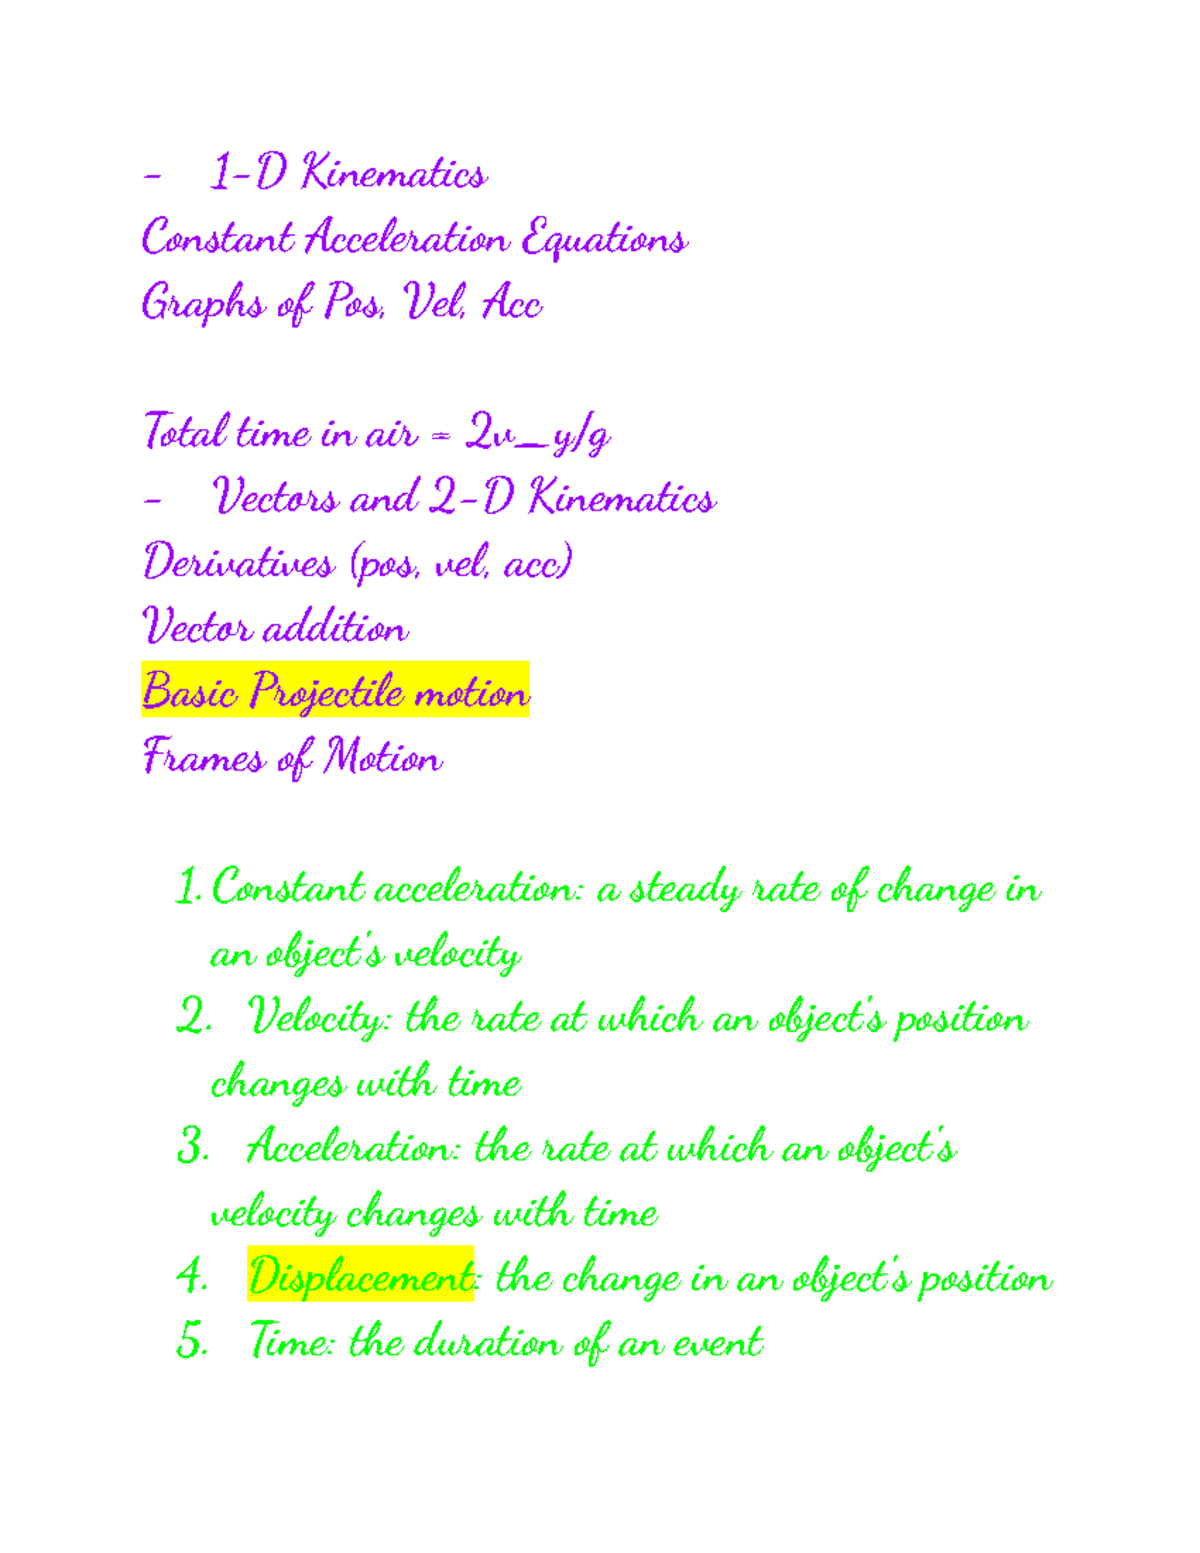 - 1-D Kinematics
Constant Acceleration Equations
Graphs of Pos, Vel, Acc
Total time in air = 2v_y/g
- Vectors and 2-D Kinematics
Derivatives (pos, vel, acc)
Vector addition
Basic Projectile motion
Frames of Motion
1. Constant acceleration: a steady rate of change in
an object's velocity
2. Velocity: the rate at which an object's position
changes with time
3. Acceleration: the rate at which an object's
velocity changes with time
4. Displacement: the change in an object's position
5. Time: the duration of an event